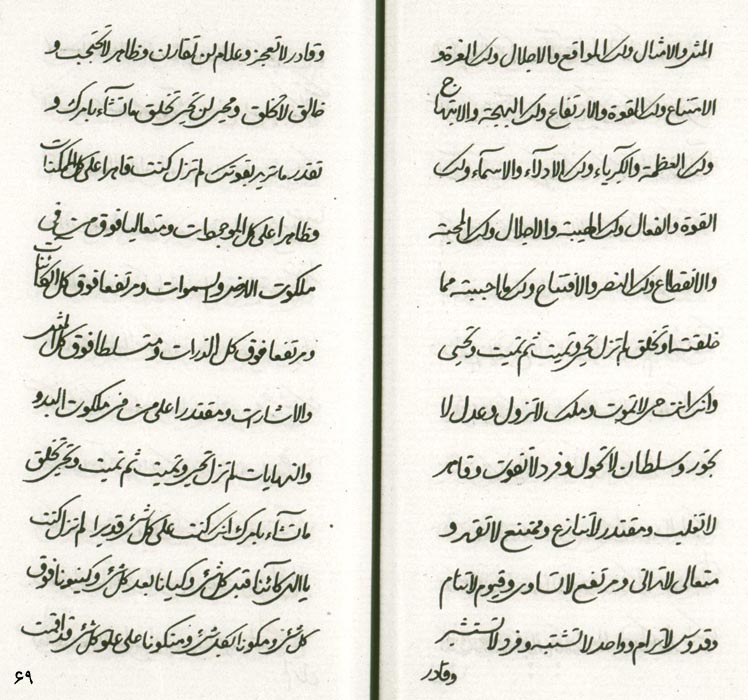 المثل والامثال ولك المواقع والاجلال ولك العزة و
الامتناع ولك القوة والارتفاع ولك البهجة والابتهاج
ولك العظمة والكبرياء ولك الادلاء والاسماء ولك
القوة والفعال ولك الهيبة والاجلال ولك المحبة
والانقطاع ولك النصر والافتتاح ولك ما احببته مما
خلقت او تخلق لم تزل تحيي وتميت ثم تميت وتحيي
وانك انت حي لا تموت وملك لا تزول وعدل لا
تجور وسلطان لا تحول وفرد لا تفوت وقاهر
لا تغلب ومقتدر لا تنازع وممتنع لا تقهر و
متعالي لا ترائى ومرتفع لا تساوى وقيوم لا تنام
وقدوس لا ترام وواحد لا تشتبه وفرد لا تستشير
وقادر
وقادر لا تعجز وعلام لن تقارن وظاهر لا تحتجب و
خالق لا تخلق ومحيي لن تحيي تخلق ما تشاء بامرك و
تقدر ما تريد بقوتك لم تزل كنت قاهرا على كل الممكنات
وظاهرا على كل الموجودات ومتعاليا فوق من في
ملكوت الارض والسموات ومرتفعا فوق كل الكائنات
ومرتفعا فوق كل الذرات ومتسلطا فوق كل
والاشارات ومقتدرا على من في ملكوت البدو
والنهايات لم تزل تحيي وتميت ثم تميت وتحيي تخلق
ما تشاء بامرك انك كنت على كل شئ قديرا لم تزل كنت
يا الهي كائنا قبل كل شئ وكيانا بعد كل شئ وكينونا فوق
كل شئ ومكونا لكل شئ ومتكونا على علو كل شئ قد اقمت
٦٩